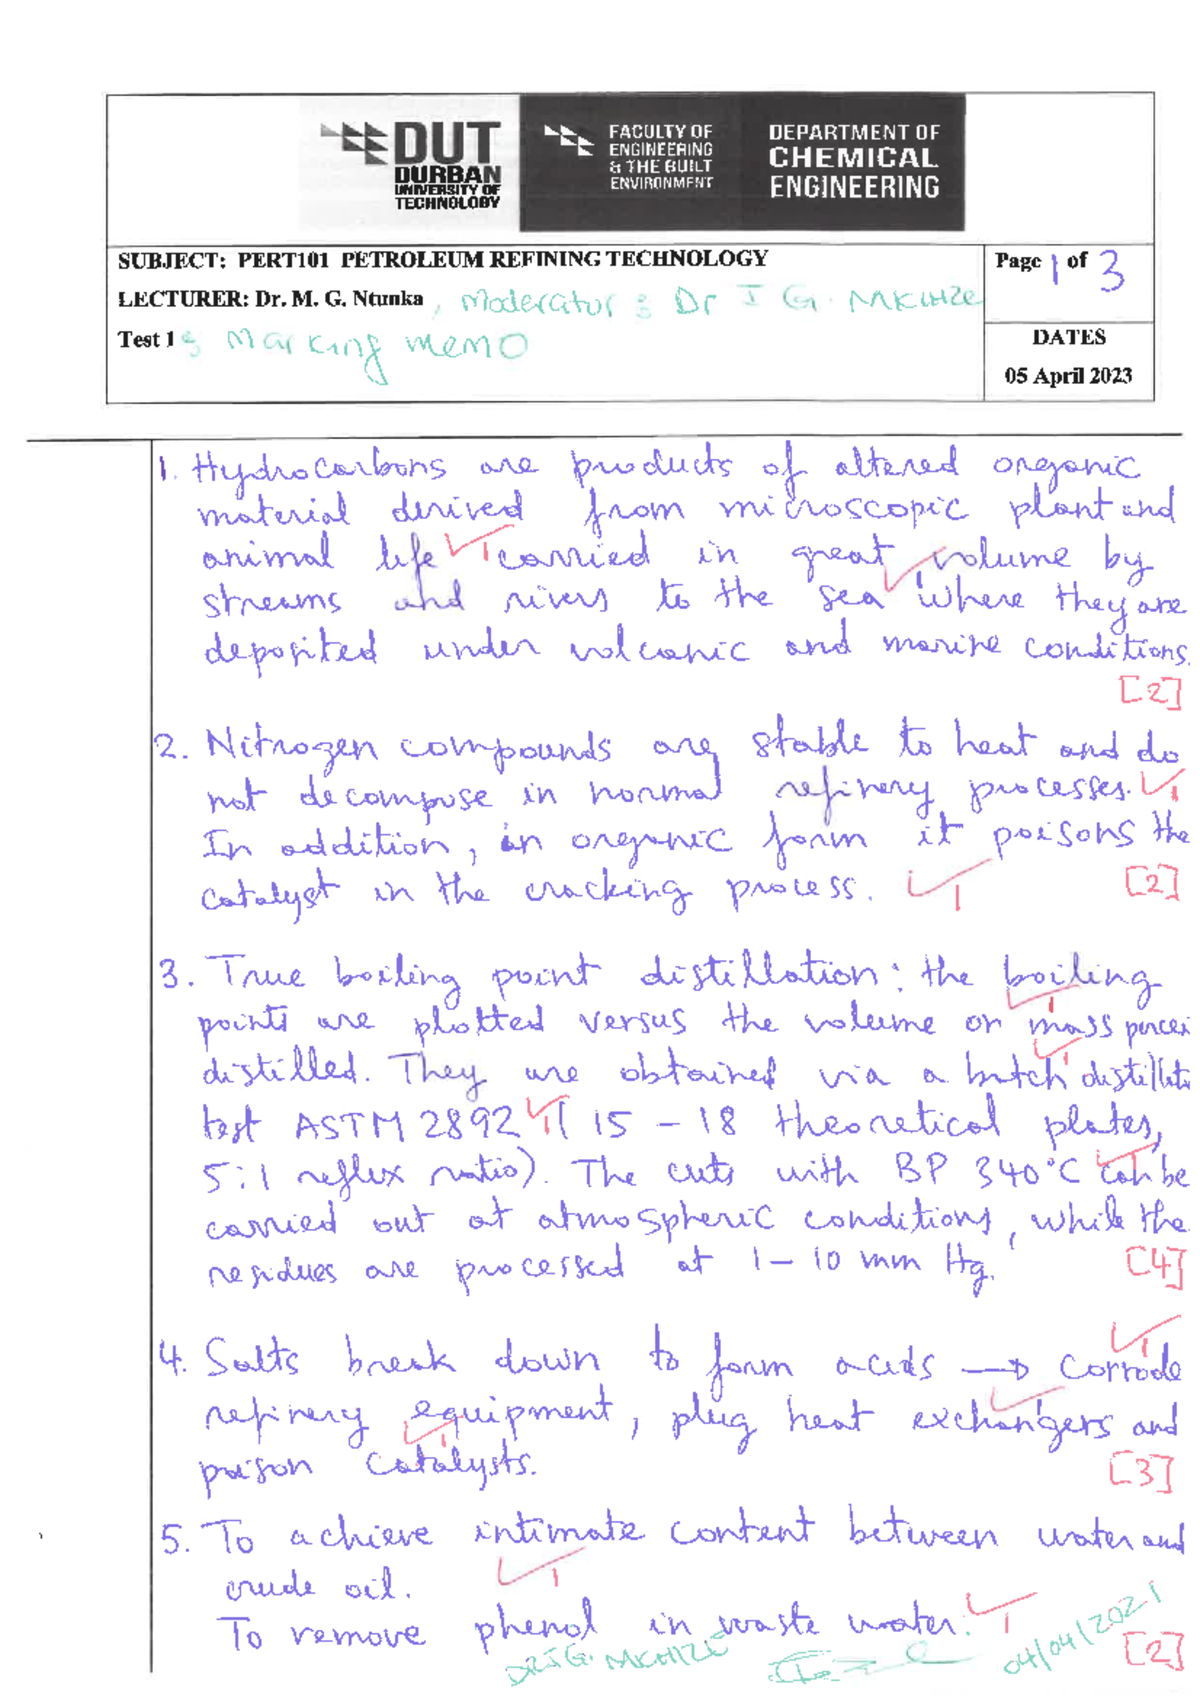 DUT
DURBAN
UNIVERSITY OF
TECHNOLOGY
FACULTY OF
ENGINEERING
& THE BUILT
ENVIRONMENT
DEPARTMENT OF
CHEMICAL
ENGINEERING
SUBJECT: PERT101 PETROLEUM REFINING TECHNOLOGY
LECTURER: Dr. M. G. Ntunka , Moderator : Dr I G. MKHIZE
Test 1 : Marking memo
Page 1 of 3
DATES
05 April 2023
1. Hydrocarbons are products of altered organic
material derived from microscopic plant and
animal life 1 carried in great volume by
streams and rivers to the sea where they are
deposited under volcanic and marine conditions.
[2]
2. Nitrogen compounds are stable to heat and do
not decompose in normal refinery processes. 1
In addition, in organic form it poisons the
catalyst in the cracking process. 1 [2]
3. True boiling point distillation: the boiling
points are plotted versus the volume or mass percen
distilled. They are obtained via a batch distillate
test ASTM 2892 1 (15 - 18 theoretical plates,
5:1 reflux ratio). The cuts with BP 340°C can be
carried out at atmospheric conditions, while the
residues are processed at 1 - 10 mm Hg. [4]
4. Salts break down to form acids → corrode
refinery equipment, plug heat exchangers and
poison catalysts. [3]
5. To achieve intimate content between water and
crude oil. 1
To remove phenol in waste water. 1
DR I G. MKHIZE 04/04/2021 [2]